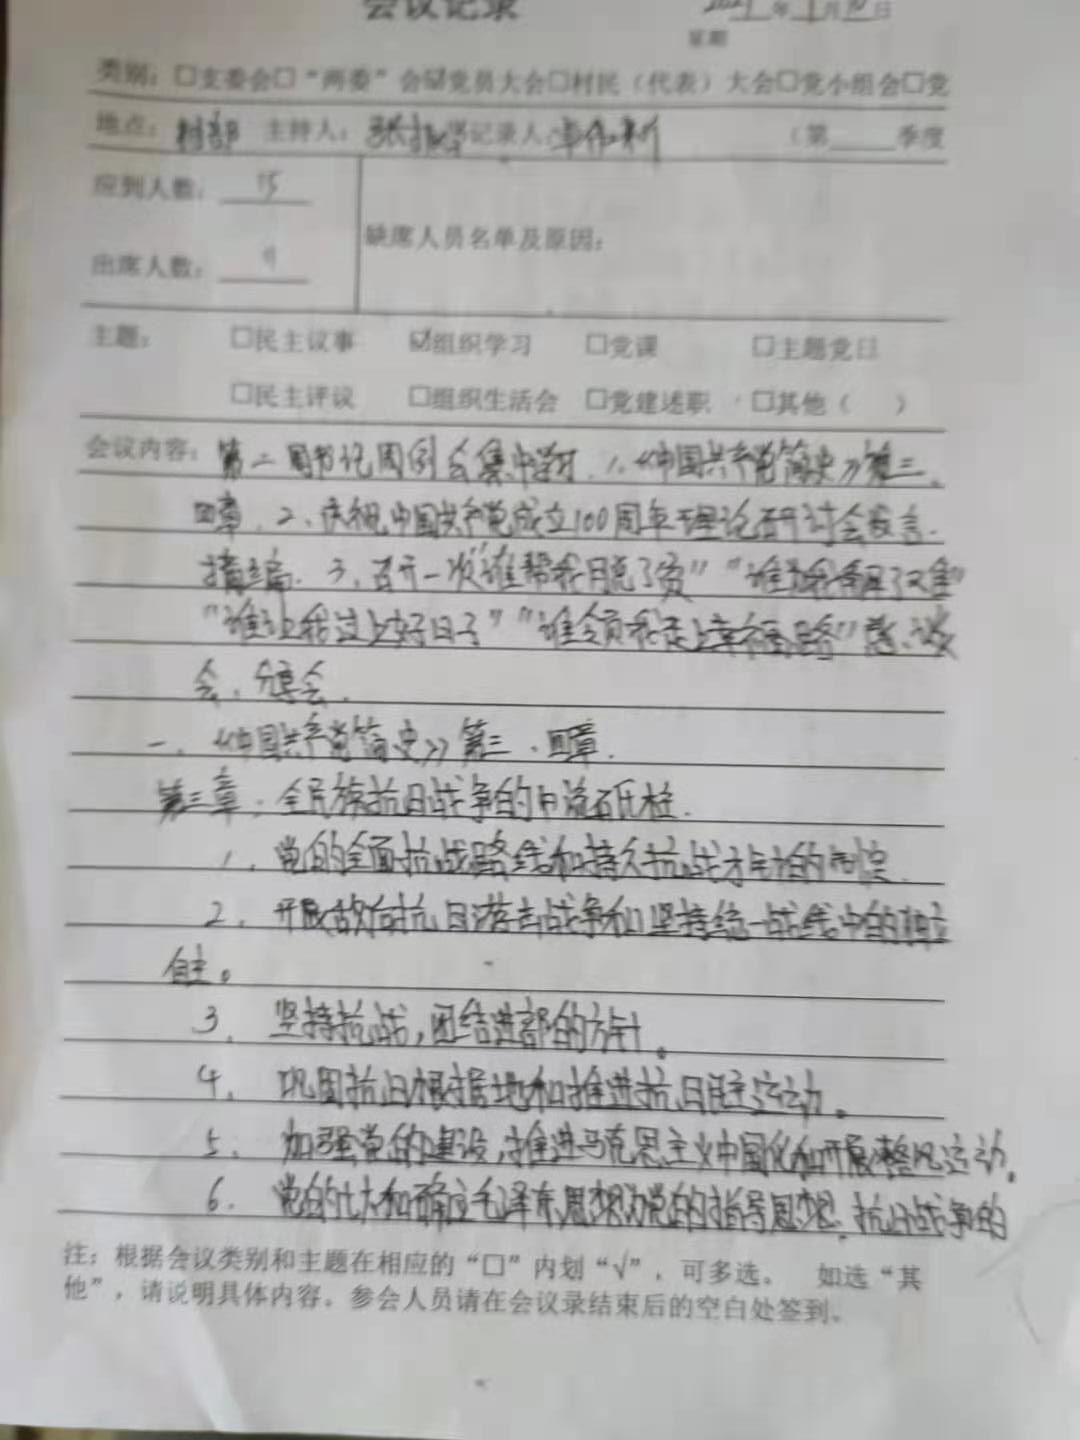 会议记录
年 月 日
星期
类别：□支委会□“两委”会☑党员大会□村民（代表）大会□党小组会□党
地点：村部 主持人： 记录人： （第____季度
应到人数：15
缺席人员名单及原因：
出席人数：
主题： □民主议事 ☑组织学习 □党课 □主题党日
□民主评议 □组织生活会 □党建述职 □其他（ ）
会议内容：第二周书记周例会集中学习.1.《中国共产党简史》第三、
四章.2、庆祝中国共产党成立100周年理论研讨会发言.
摘编.3、召开一次“谁帮我脱了贫”“谁为我解了难”
“谁让我过上好日子”“谁领我走上幸福路”恳谈
会、分享会.
一、《中国共产党简史》第三、四章.
第三章.全民族抗日战争的中流砥柱.
1、党的全面抗战路线和持久抗战方针的制定
2、开展敌后抗日游击战争和坚持统一战线中的独立
自主。
3、坚持抗战,团结进部的方针。
4、巩固抗日根据地和推进抗日民主运动。
5、加强党的建设,推进马克思主义中国化和开展整风运动。
6、党的七大和确立毛泽东思想为党的指导思想.抗日战争的
注：根据会议类别和主题在相应的“□”内划“√”，可多选。 如选“其
他”，请说明具体内容。参会人员请在会议录结束后的空白处签到。